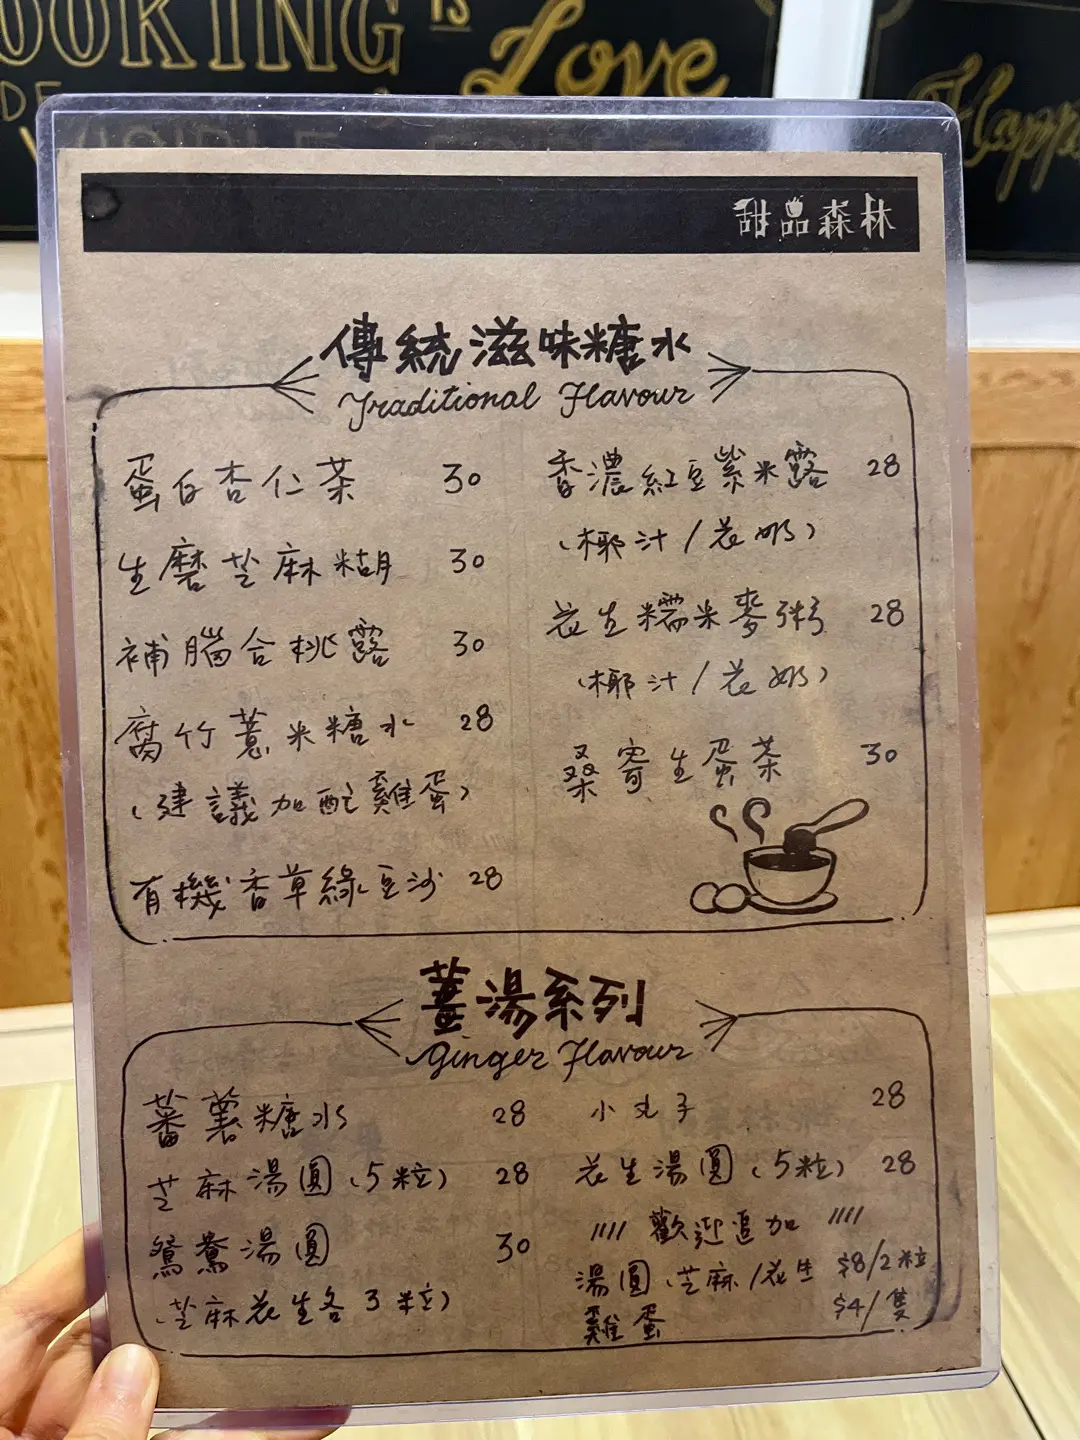 OOKING IS Love
DE
Happi
甜品森林
傳統滋味糖水
Traditional Flavour
蛋白杏仁茶 30
生磨芝麻糊 30
補腦合桃露 30
腐竹薏米糖水 28
(建議加配雞蛋)
有機香草綠豆沙 28
香濃紅豆紫米露 28
(椰汁/花奶)
花生糯米麥粥 28
(椰汁/花奶)
桑寄生蛋茶 30
薑湯系列
Ginger Flavour
蕃薯糖水 28
芝麻湯圓(5粒) 28
鴛鴦湯圓 30
(芝麻花生各3粒)
小丸子 28
花生湯圓(5粒) 28
//// 歡迎追加 ////
湯圓(芝麻/花生 $8/2粒
雞蛋 $4/隻